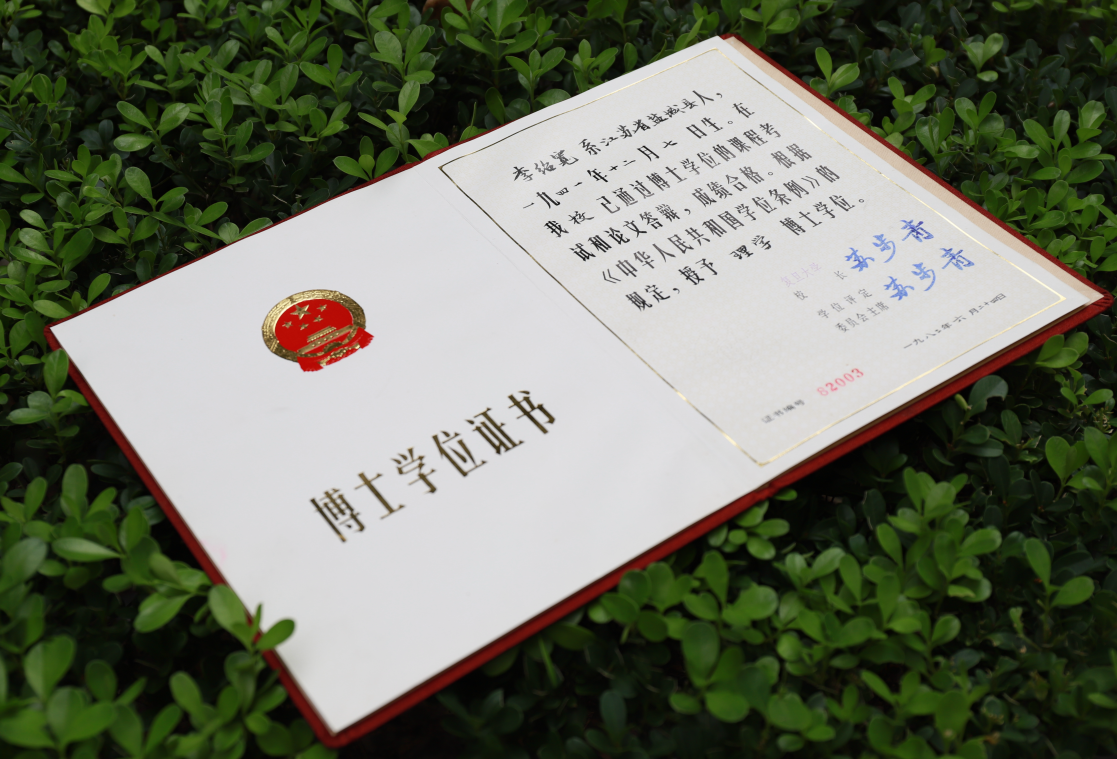 博士学位证书
李绍宽 系江苏省盐城县人，
一九四一年十二月七 日生。在
我校 已通过博士学位的课程考
试和论文答辩，成绩合格。根据
《中华人民共和国学位条例》的
规定，授予 理学 博士学位。
复旦大学
校 长 苏步青
学位评定
委员会主席 苏步青
一九八二年六月二十四日
证书编号 82003